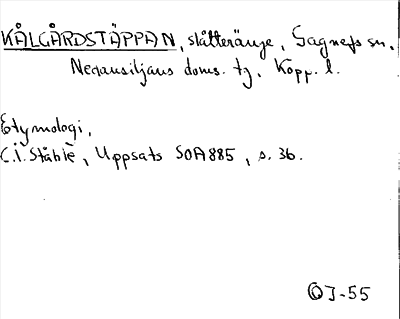 KÅLGÅRDSTÄPPAN, slåtteränge, Gagnefs sn.
Nedansiljans doms. tg, Kopp. l.
Etymologi,
C.I. Ståhle, Uppsats SOA 885, s. 36.
OJ-55